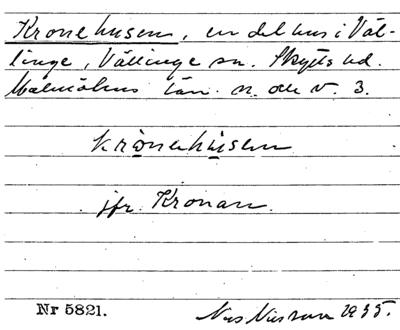 Kronehusen, en del hus i Väl-
linge, Vällinge sn. Skytts hd.
Malmöhus län. n. och v. 3.
krónehùsem
jfr. Kronan.
Nr 5821. Nils Nilsson 1935.